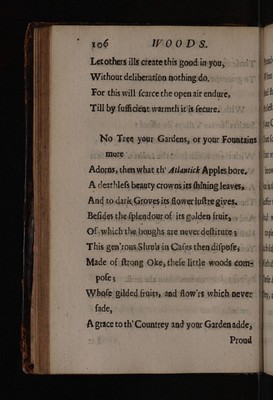 106 WOODS.
Let others ills create this good in you,
Without deliberation nothing do.
For this will ſcarce the open air endure,
Till by ſufficient warmth it is ſecure.
No Tree your Gardens, or your Fountains
more
Adorns, then what th' Atlantick Apples bore.
A deathleſs beauty crowns its ſhining leaves,
And to dark Groves its flower luſtre gives.
Beſides the ſplendour of its golden fruit,
Of which the boughs are never deſtitute;
This gen'rous Shrub in Caſes then diſpoſe,
Made of ſtrong Oke, theſe little woods com-
poſe;
Whoſe gilded fruits, and flow'rs which never
fade,
A grace to th' Countrey and your Garden adde,
Proud